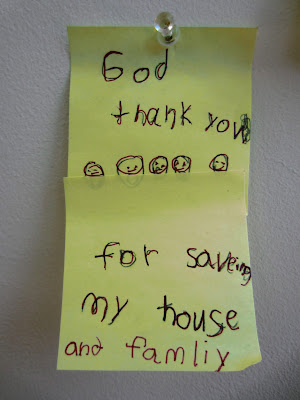 God
thank you
for saveing
my house
and famliy